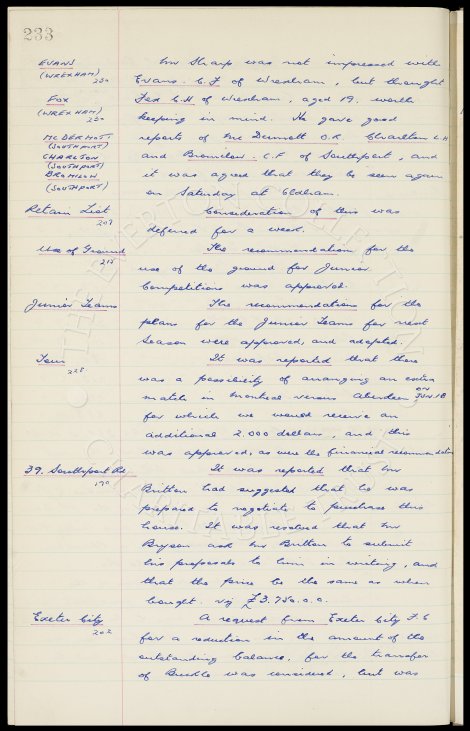 233
EVANS
(WREXHAM)
230
FOX
(WREXHAM)
230
MCDERMOTT
(SOUTHPORT)
CHARLTON
(SOUTHPORT)
BROMILOW
(SOUTHPORT)
Mr Sharp was not impressed with
Evans. C.F of Wrexham, but thought
Fox C.H. of Wrexham, aged 19. worth
keeping in mind. He gave good
reports of Mc Dermott O.R. Charlton C.H
and Bromilow. C.F of Southport, and
it was agreed that they be seen again
on Saturday at Oldham
Retain List
207
Consideration of this was
deferred for a week.
Use of Ground
215
The recommendation for the
use of the ground for Junior
Competitions was approved.
Junior Teams
The recommendations for the
plans for the Junior Teams for next
Season were approved, and adopted.
Tour
228
It was reported that there
was a possibility of arranging an extra
match in Montreal versus Aberdeen, on JUN. 18
for which we would receive an
additional 2.000 dollars, and this
was approved, as were the financial recommendation
39. Southport Rd.
190
It was reported that Mr
Britton had suggested that he was
prepared to negotiate to purchase this
house. It was resolved that Mr
Bryson ask Mr Britton to submit
his proposals to him in writing, and
that the price be the same as when
bought. viz £3.750.0.0.
Exeter City
202
A request from Exeter City F.C
for a reduction in the amount of the
outstanding balance, for the transfer
of Buckle was considered, but was
THE EVERTON COLLECTION